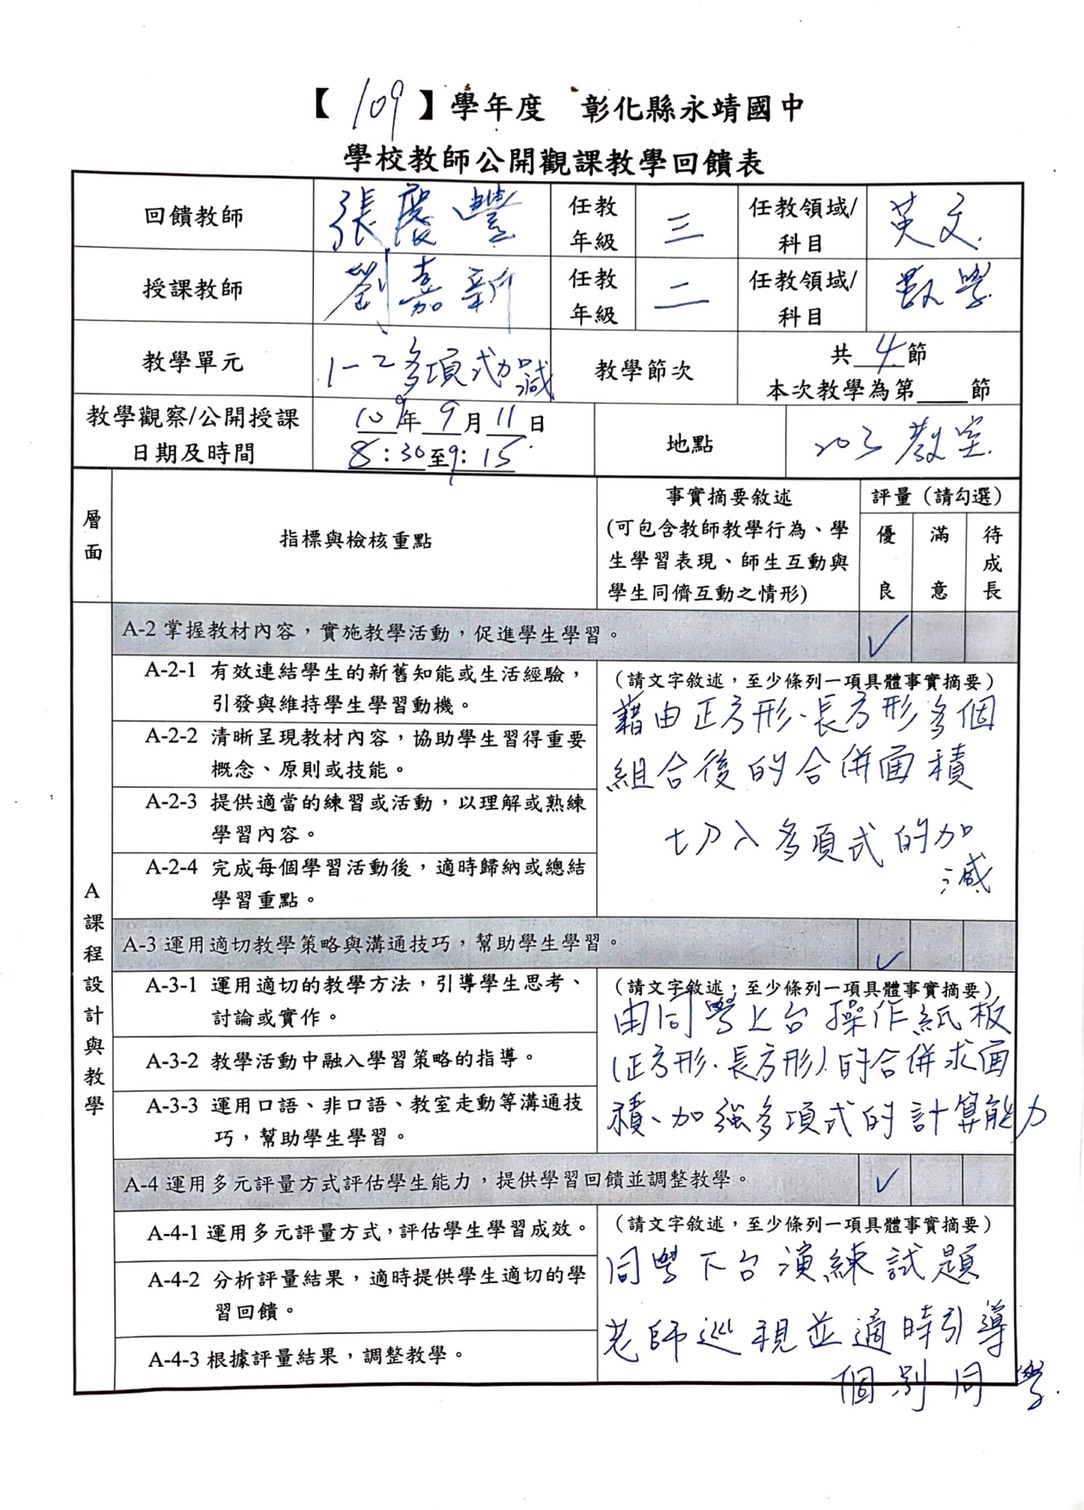 【109】學年度 彰化縣永靖國中
學校教師公開觀課教學回饋表
回饋教師 張慶豐 任教年級 三 任教領域/科目 英文
授課教師 劉嘉新 任教年級 二 任教領域/科目 數學
教學單元 1-2多項式加減 教學節次 共 4 節
本次教學為第____節
教學觀察/公開授課日期及時間 109年 9月 11日 地點 203教室
8:30至9:15
層面 指標與檢核重點 事實摘要敘述 評量（請勾選）
(可包含教師教學行為、學生學習表現、師生互動與學生同儕互動之情形) 優良 滿意 待成長
A課程設計與教學
A-2 掌握教材內容，實施教學活動，促進學生學習。 ✓
A-2-1 有效連結學生的新舊知能或生活經驗，
引發與維持學生學習動機。
A-2-2 清晰呈現教材內容，協助學生習得重要
概念、原則或技能。
A-2-3 提供適當的練習或活動，以理解或熟練
學習內容。
A-2-4 完成每個學習活動後，適時歸納或總結
學習重點。
（請文字敘述，至少條列一項具體事實摘要）
藉由正方形、長方形多個
組合後的合併面積
切入多項式的加
減
A-3 運用適切教學策略與溝通技巧，幫助學生學習。 ✓
A-3-1 運用適切的教學方法，引導學生思考、
討論或實作。
A-3-2 教學活動中融入學習策略的指導。
A-3-3 運用口語、非口語、教室走動等溝通技
巧，幫助學生學習。
（請文字敘述，至少條列一項具體事實摘要）
由同學上台操作紙板
(正方形、長方形)的合併求面
積、加強多項式的計算能力
A-4 運用多元評量方式評估學生能力，提供學習回饋並調整教學。 ✓
A-4-1 運用多元評量方式，評估學生學習成效。
A-4-2 分析評量結果，適時提供學生適切的學
習回饋。
A-4-3 根據評量結果，調整教學。
（請文字敘述，至少條列一項具體事實摘要）
同學下台演練試題
老師巡視並適時引導
個別同學.